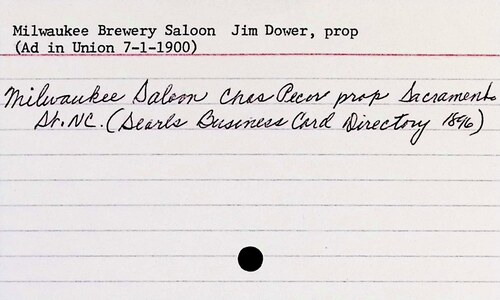 Milwaukee Brewery Saloon Jim Dower, prop
(Ad in Union 7-1-1900)
Milwaukee Saloon Chas Pecor prop Sacramento
St. NC. (Searls Business Card Directory 1896)